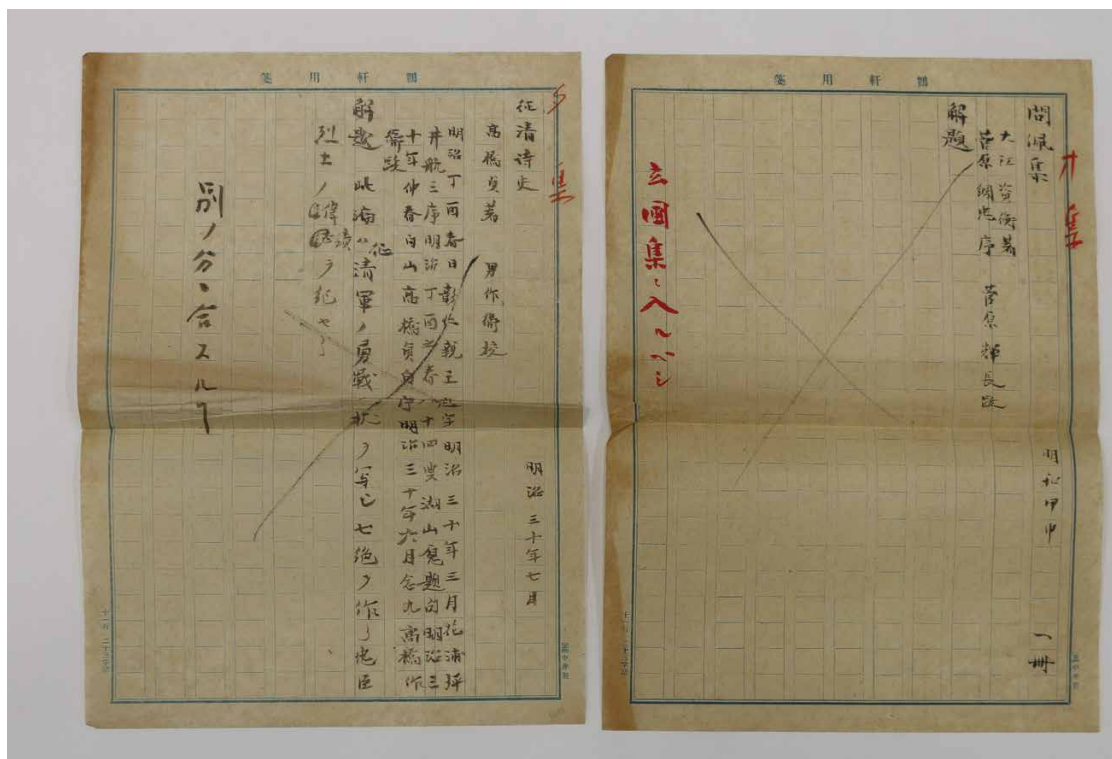 鶚軒用箋
集
明和甲申 一冊
大江資衡著
菅原綱忠序 菅原輝長跋
解題
玄圃集ニ入ルベシ
鶚軒用箋
集
征清詩史 明治三十年七月
高橋貞著 男作衛校
明治丁酉春日彰仁親王題字明治三十年三月花浦坪
井航三序明治丁酉之春八十四叟湖山題句明治三
十年仲春白山高橋貞自序明治三十年六月念九高橋作
衛跋
解題 此編ハ征清軍ノ勇戦ノ状ヲ写セシ七絶ノ作
烈士ノ偉績ヲ記セリ
別ノ分ニ合スルヿ